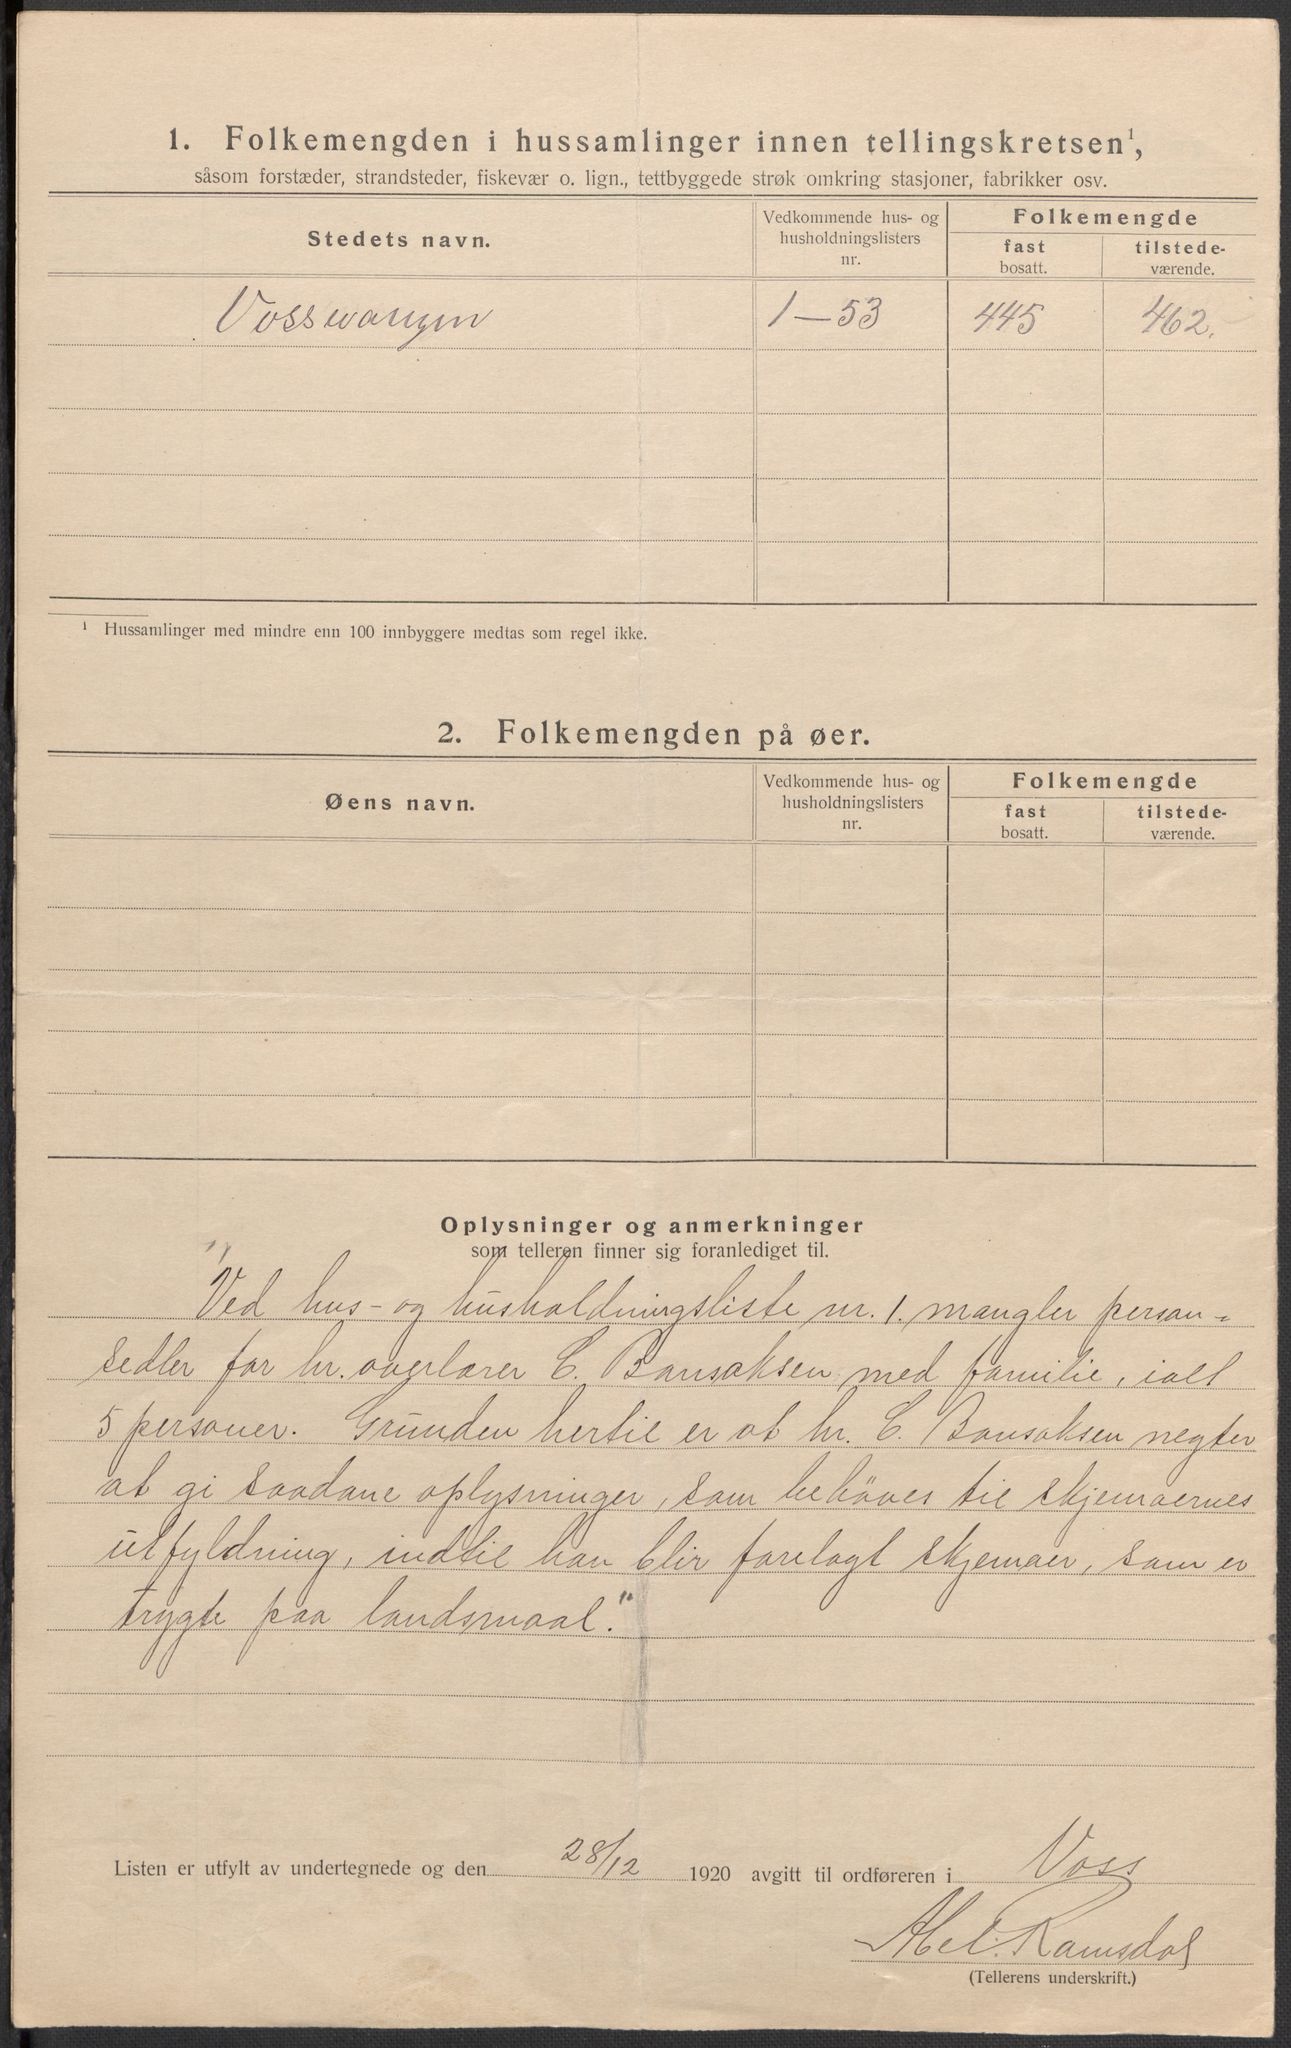 1. Folkemengden i hussamlinger innen tellingskretsen¹,
såsom forstæder, strandsteder, fiskevær o. lign., tettbyggede strøk omkring stasjoner, fabrikker osv.
Stedets navn.
Vedkommende hus- og
husholdningslisters
nr.
Folkemengde
fast
bosatt.
tilstede-
værende.
Vossevangen 1-53 445 462.
¹ Hussamlinger med mindre enn 100 innbyggere medtas som regel ikke.
2. Folkemengden på øer.
Øens navn.
Vedkommende hus- og
husholdningslisters
nr.
Folkemengde
fast
bosatt.
tilstede-
værende.
Oplysninger og anmerkninger
som telleren finner sig foranlediget til.
"Ved hus- og husholdningsliste nr. 1. mangler person-
sedler for hr. overlærer C. med familie, ialt
5 personer. Grunden hertil er at hr. C. negter
at gi saadane oplysninger, som behöves til skjemaernes
utfyldning, indtil han blir forelagt skjemaer, som er
trygte paa landsmaal."
Listen er utfylt av undertegnede og den 28/12 1920 avgitt til ordføreren i Voss
Abel. Ramsdal
(Tellerens underskrift.)